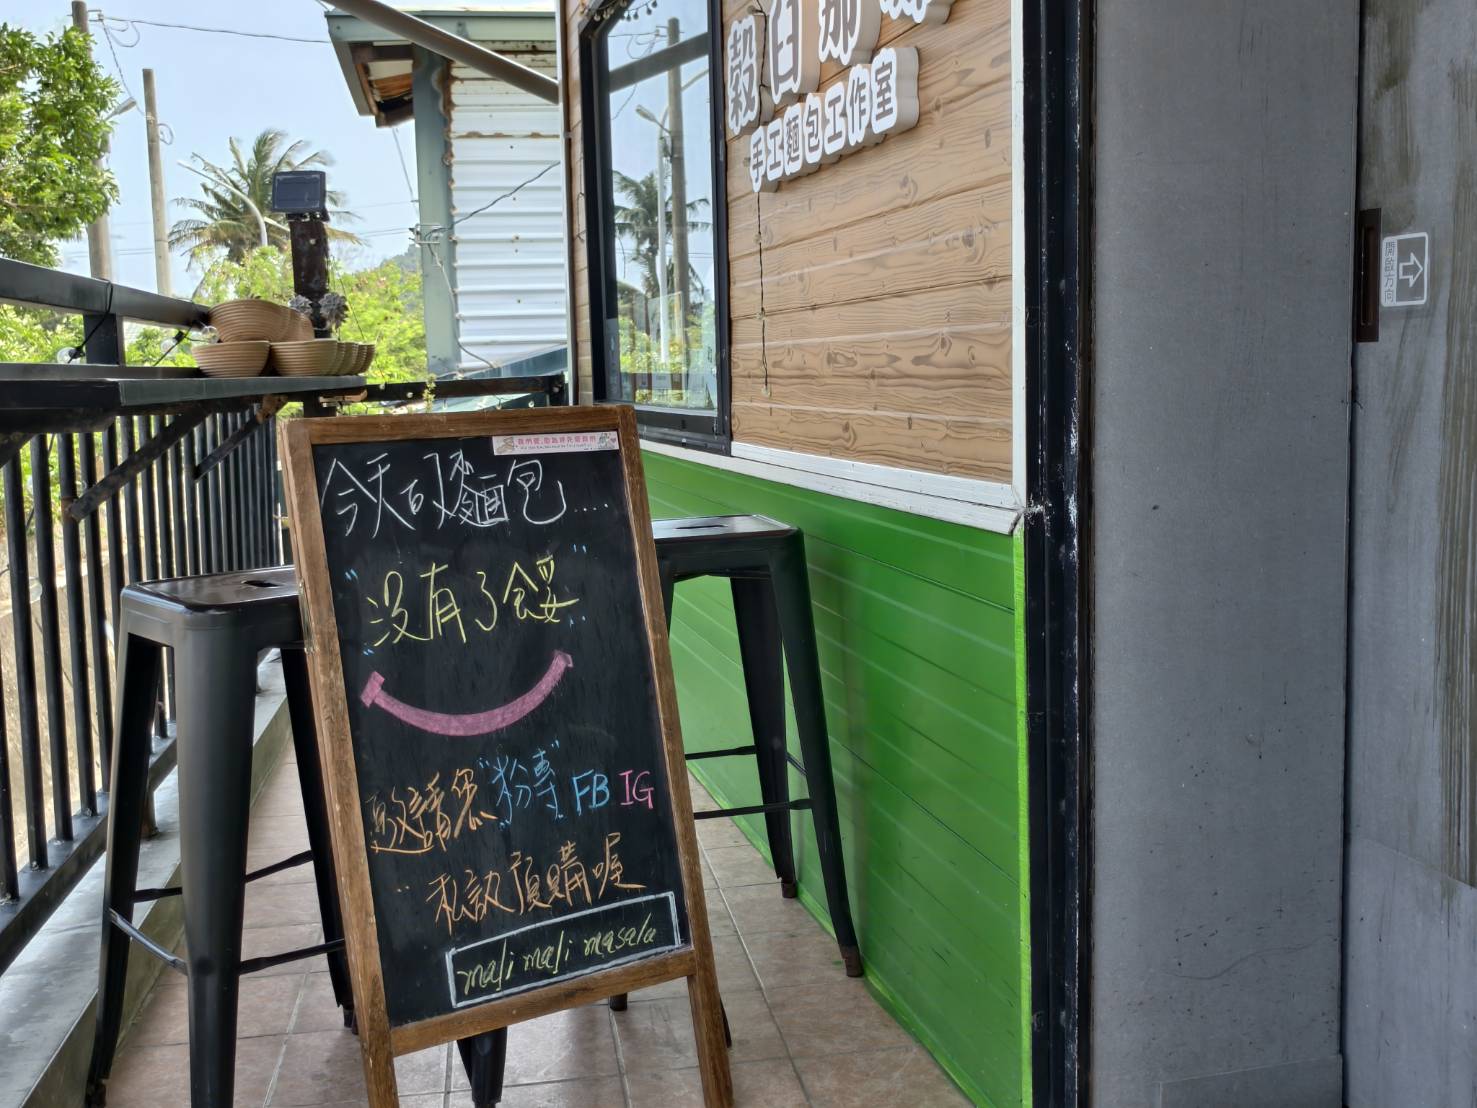 穀日那
手工麵包工作室
開啟方向
今天的麵包....
"沒有了餒"
邀請您"粉專" FB IG
"私訊預購喔
mali mali masala